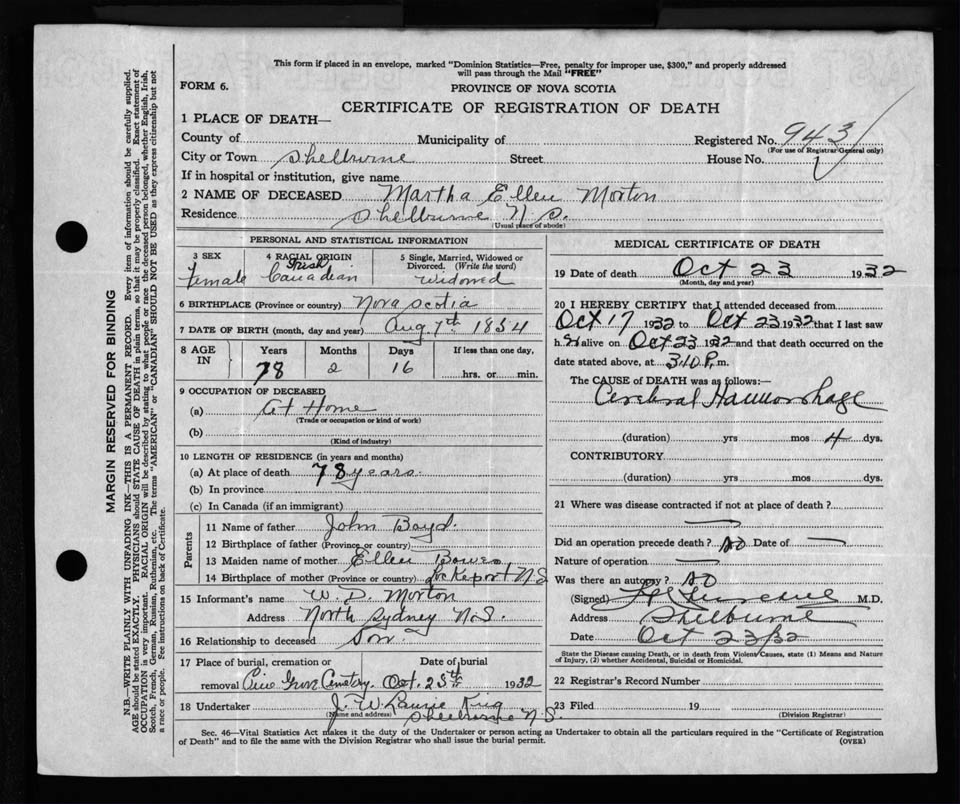 This form if placed in an envelope, marked "Dominion Statistics—Free, penalty for improper use, $300," and properly addressed
will pass through the Mail "FREE"
FORM 6.
PROVINCE OF NOVA SCOTIA
CERTIFICATE OF REGISTRATION OF DEATH
1 PLACE OF DEATH—
County of Municipality of Registered No. 943
(For use of Registrar General only)
City or Town Shelburne Street House No.
If in hospital or institution, give name
2 NAME OF DECEASED Martha Ellen Morton
Residence Shelburne N.S.
(Usual place of abode)
PERSONAL AND STATISTICAL INFORMATION
3 SEX
Female
4 RACIAL ORIGIN
Irish
Canadian
5 Single, Married, Widowed or
Divorced. (Write the word)
Widowed
6 BIRTHPLACE (Province or country) Nova Scotia
7 DATE OF BIRTH (month, day and year) Aug 7th 1854
8 AGE
IN
Years Months Days If less than one day,
78 2 16 hrs. or min.
9 OCCUPATION OF DECEASED
(a) At Home
(Trade or occupation or kind of work)
(b)
(Kind of industry)
10 LENGTH OF RESIDENCE (in years and months)
(a) At place of death 78 years
(b) In province
(c) In Canada (if an immigrant)
Parents
11 Name of father John Boyd.
12 Birthplace of father (Province or country)
13 Maiden name of mother Ellen Bower
14 Birthplace of mother (Province or country) Lockeport N.S
15 Informant's name W. D. Morton
Address North Sydney N.S.
16 Relationship to deceased Son.
17 Place of burial, cremation or Date of burial
removal Pine Grove Cemetery. Oct. 25th 1932
18 Undertaker J. W. Laurie King
(Name and address) Shelburne N.S.
MEDICAL CERTIFICATE OF DEATH
19 Date of death Oct 23 1932
(Month, day and year)
20 I HEREBY CERTIFY that I attended deceased from
Oct 17 1932 to Oct 23 1932 that I last saw
h er alive on Oct 23 1932 and that death occurred on the
date stated above, at 3.10 P. m.
The CAUSE OF DEATH was as follows:—
Cerebral Haemorrhage
(duration) yrs mos 4 dys.
CONTRIBUTORY
(duration) yrs. mos dys.
21 Where was disease contracted if not at place of death?
Did an operation precede death? No Date of —
Nature of operation —
Was there an autopsy? No
(Signed) M.D.
Address Shelburne
Date Oct 23/32
State the Disease causing Death, or in death from Violent Causes, state (1) Means and Nature
of Injury, (2) whether Accidental, Suicidal or Homicidal.
22 Registrar's Record Number
23 Filed 19
(Division Registrar)
Sec. 46—Vital Statistics Act makes it the duty of the Undertaker or person acting as Undertaker to obtain all the particulars required in the "Certificate of Registration
of Death" and to file the same with the Division Registrar who shall issue the burial permit.
(OVER)
MARGIN RESERVED FOR BINDING
N.B.—WRITE PLAINLY WITH UNFADING INK—THIS IS A PERMANENT RECORD. Every item of information should be carefully supplied.
AGE should be stated EXACTLY. PHYSICIANS should STATE CAUSE OF DEATH in plain terms, so that it may be properly classified. Exact statement of
OCCUPATION is very important. RACIAL ORIGIN will be described by stating to what people or race the deceased person belonged, whether English, Irish,
Scotch, French, German, Russian, Ruthenian, etc. The terms "AMERICAN" or "CANADIAN" SHOULD NOT BE USED as they express citizenship but not
a race or people. See instructions on back of Certificate.